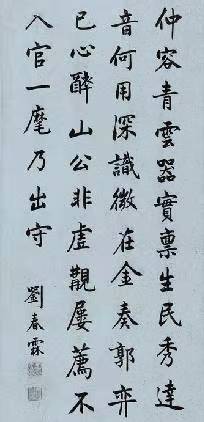 仲容青雲器實禀生民秀達
音何用深識微在金奏郭弈
已心醉山公非虛覯屢薦不
入官一麾乃出守
劉春霖